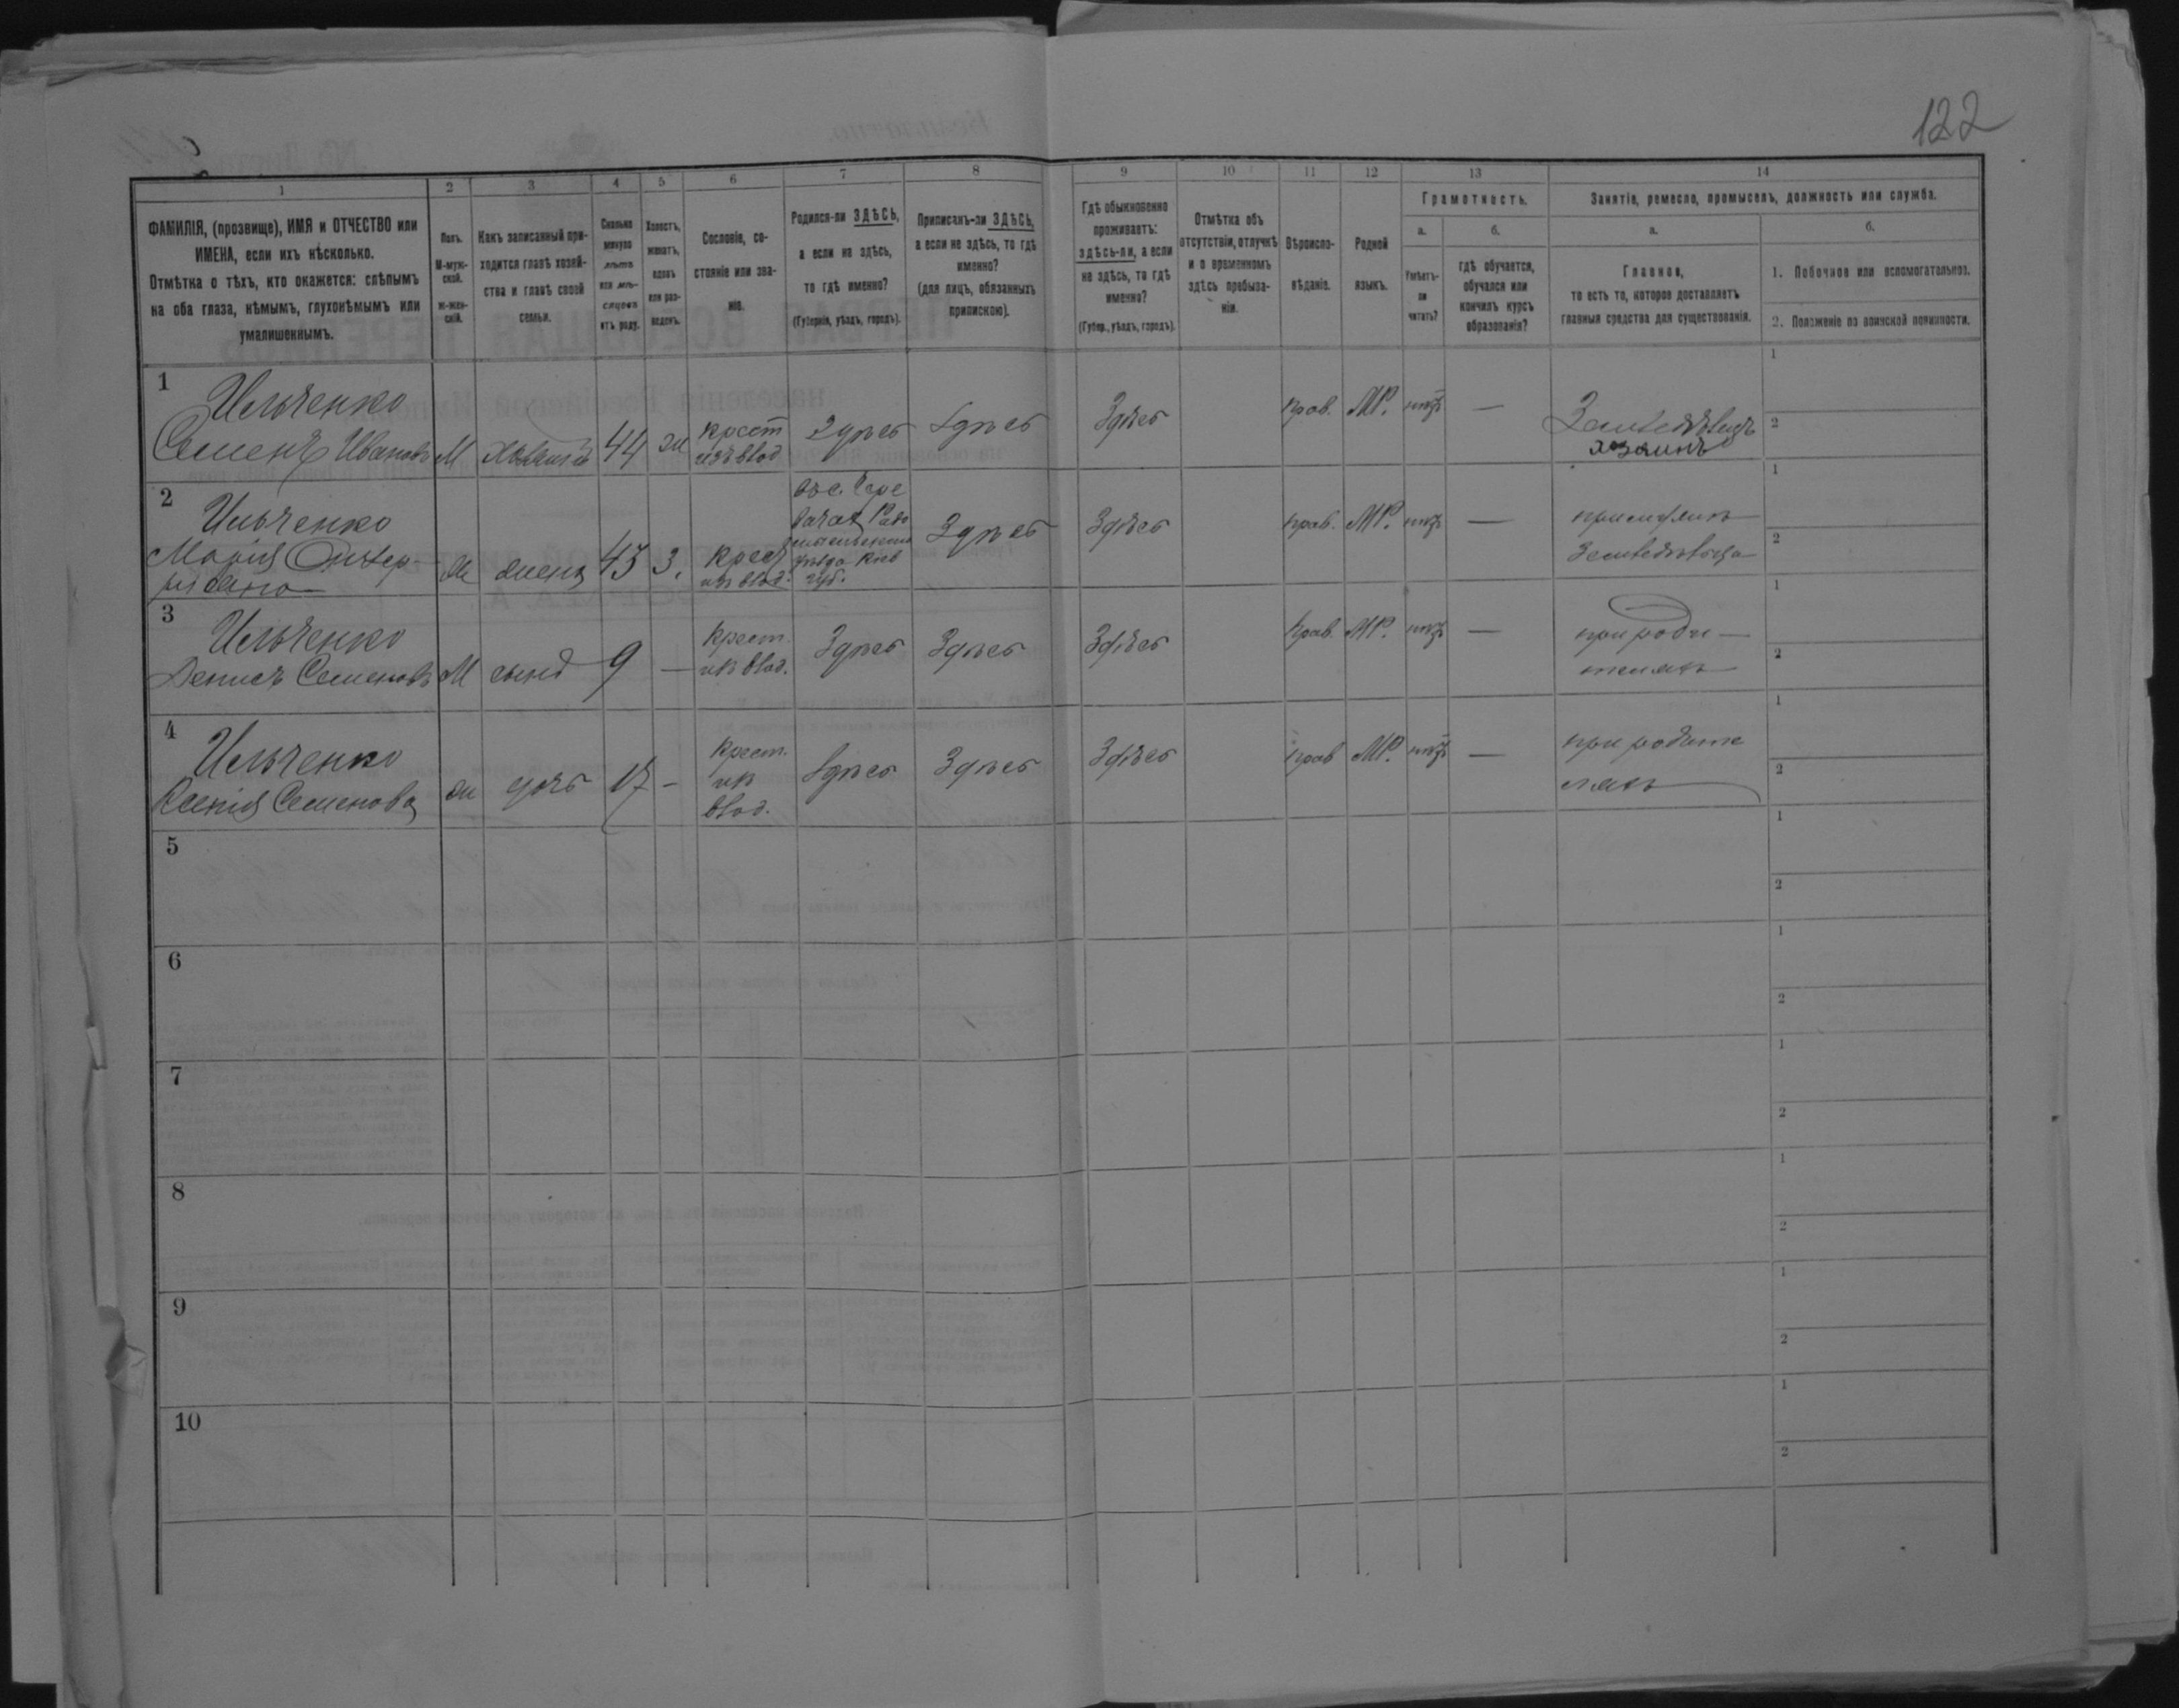 122
1
2
3
4
5
6
7
8
9
10
11
12
13
14
ФАМИЛІЯ, (прозвище), ИМЯ и ОТЧЕСТВО или
ИМЕНА, если ихъ нѣсколько.
Отмѣтка о тѣхъ, кто окажется: слѣпымъ
на оба глаза, нѣмымъ, глухонѣмымъ или
умалишеннымъ.
Полъ.
М-муж-
ской.
ж-жен-
скій.
Какъ записанный при-
ходится главѣ хозяй-
ства и главѣ своей
семьи.
Сколько
минуло
лѣтъ
или мѣ-
сяцевъ
отъ роду.
Холостъ,
женатъ,
вдовъ
или раз-
веденъ.
Сословіе, со-
стояніе или зва-
ніе.
Родился-ли ЗДѢСЬ,
а если не здѣсь,
то гдѣ именно?
(Губернія, уѣздъ, городъ).
Приписанъ-ли ЗДѢСЬ,
а если не здѣсь, то гдѣ
именно?
(для лицъ, обязанныхъ
припискою).
Гдѣ обыкновенно
проживаетъ:
здѣсь-ли, а если
не здѣсь, то гдѣ
именно?
(Губер., уѣздъ, городъ).
Отмѣтка объ
отсутствіи, отлучкѣ
и о временномъ
здѣсь пребыва-
ніи.
Вѣроиспо-
вѣданіе.
Родной
языкъ.
Грамотность.
а.
Умѣетъ-
ли
читать?
б.
гдѣ обучается,
обучался или
кончилъ курсъ
образованія?
Занятіе, ремесло, промыселъ, должность или служба.
а.
Главное,
то есть то, которое доставляетъ
главныя средства для существованія.
б.
1. Побочное или вспомогательное.
2. Положеніе по воинской повинности.
1
Ильченко
Семенъ Ивановъ
М
хозяинъ
44
ж
крест
изъ влад
Здѣсь
Здѣсь
Здѣсь
прав.
МР.
нѣтъ
—
Земледѣлецъ
хозяинъ
1
2
2
Ильченко
Марія
ж
жена
43
з.
крест
изъ влад.
Кіев
губ.
Здѣсь
Здѣсь
прав.
МР.
нѣтъ
—
при мужѣ
земледѣльца
1
2
3
Ильченко
Денисъ Семеновъ
М
сынъ
9
—
крест.
изъ влад.
Здѣсь
Здѣсь
Здѣсь
прав.
МР.
нѣтъ
—
при роди—
теляхъ
1
2
4
Ильченко
Ксенія Семенова
ж
дочь
17
-
крест.
изъ
влад.
Здѣсь
Здѣсь
Здѣсь
прав
МР.
нѣтъ
—
при родите
ляхъ
1
2
5
1
2
6
1
2
7
1
2
8
1
2
9
1
2
10
1
2